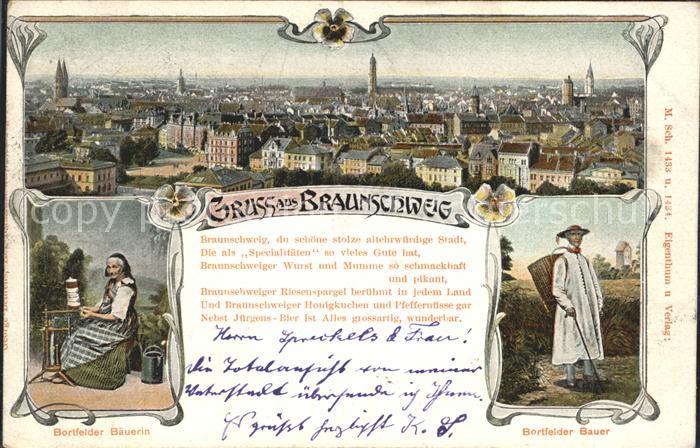 GRUSS AUS BRAUNSCHWEIG
Braunschweig, du schöne stolze altehrwürdge Stadt,
Die als „Specialitäten" so vieles Gute hat,
Braunschweiger Wurst und Mumme so schmackhaft
und pikant,
Braunschweiger Riesenspargel berühmt in jedem Land
Und Braunschweiger Honigkuchen und Pfeffernüsse gar
Nebst Jürgens-Bier ist Alles grossartig, wunderbar.
Herrn Spreckels & Frau!
Die Totalansicht von meiner
Vaterstadt übersende ich Ihnen.
Es grüßt herzlichst K. S.
Bortfelder Bäuerin
Bortfelder Bauer
M. Sch. 1433 u. 1434. Eigenthum u Verlag:
George
copyright